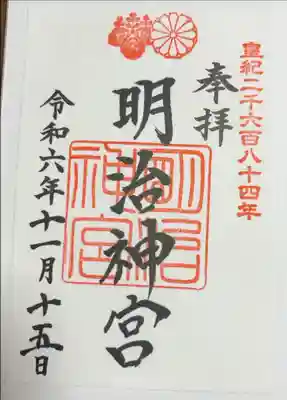 皇紀二千六百八十四年
奉拝
明治神宮
明治神宮
令和六年十一月十五日